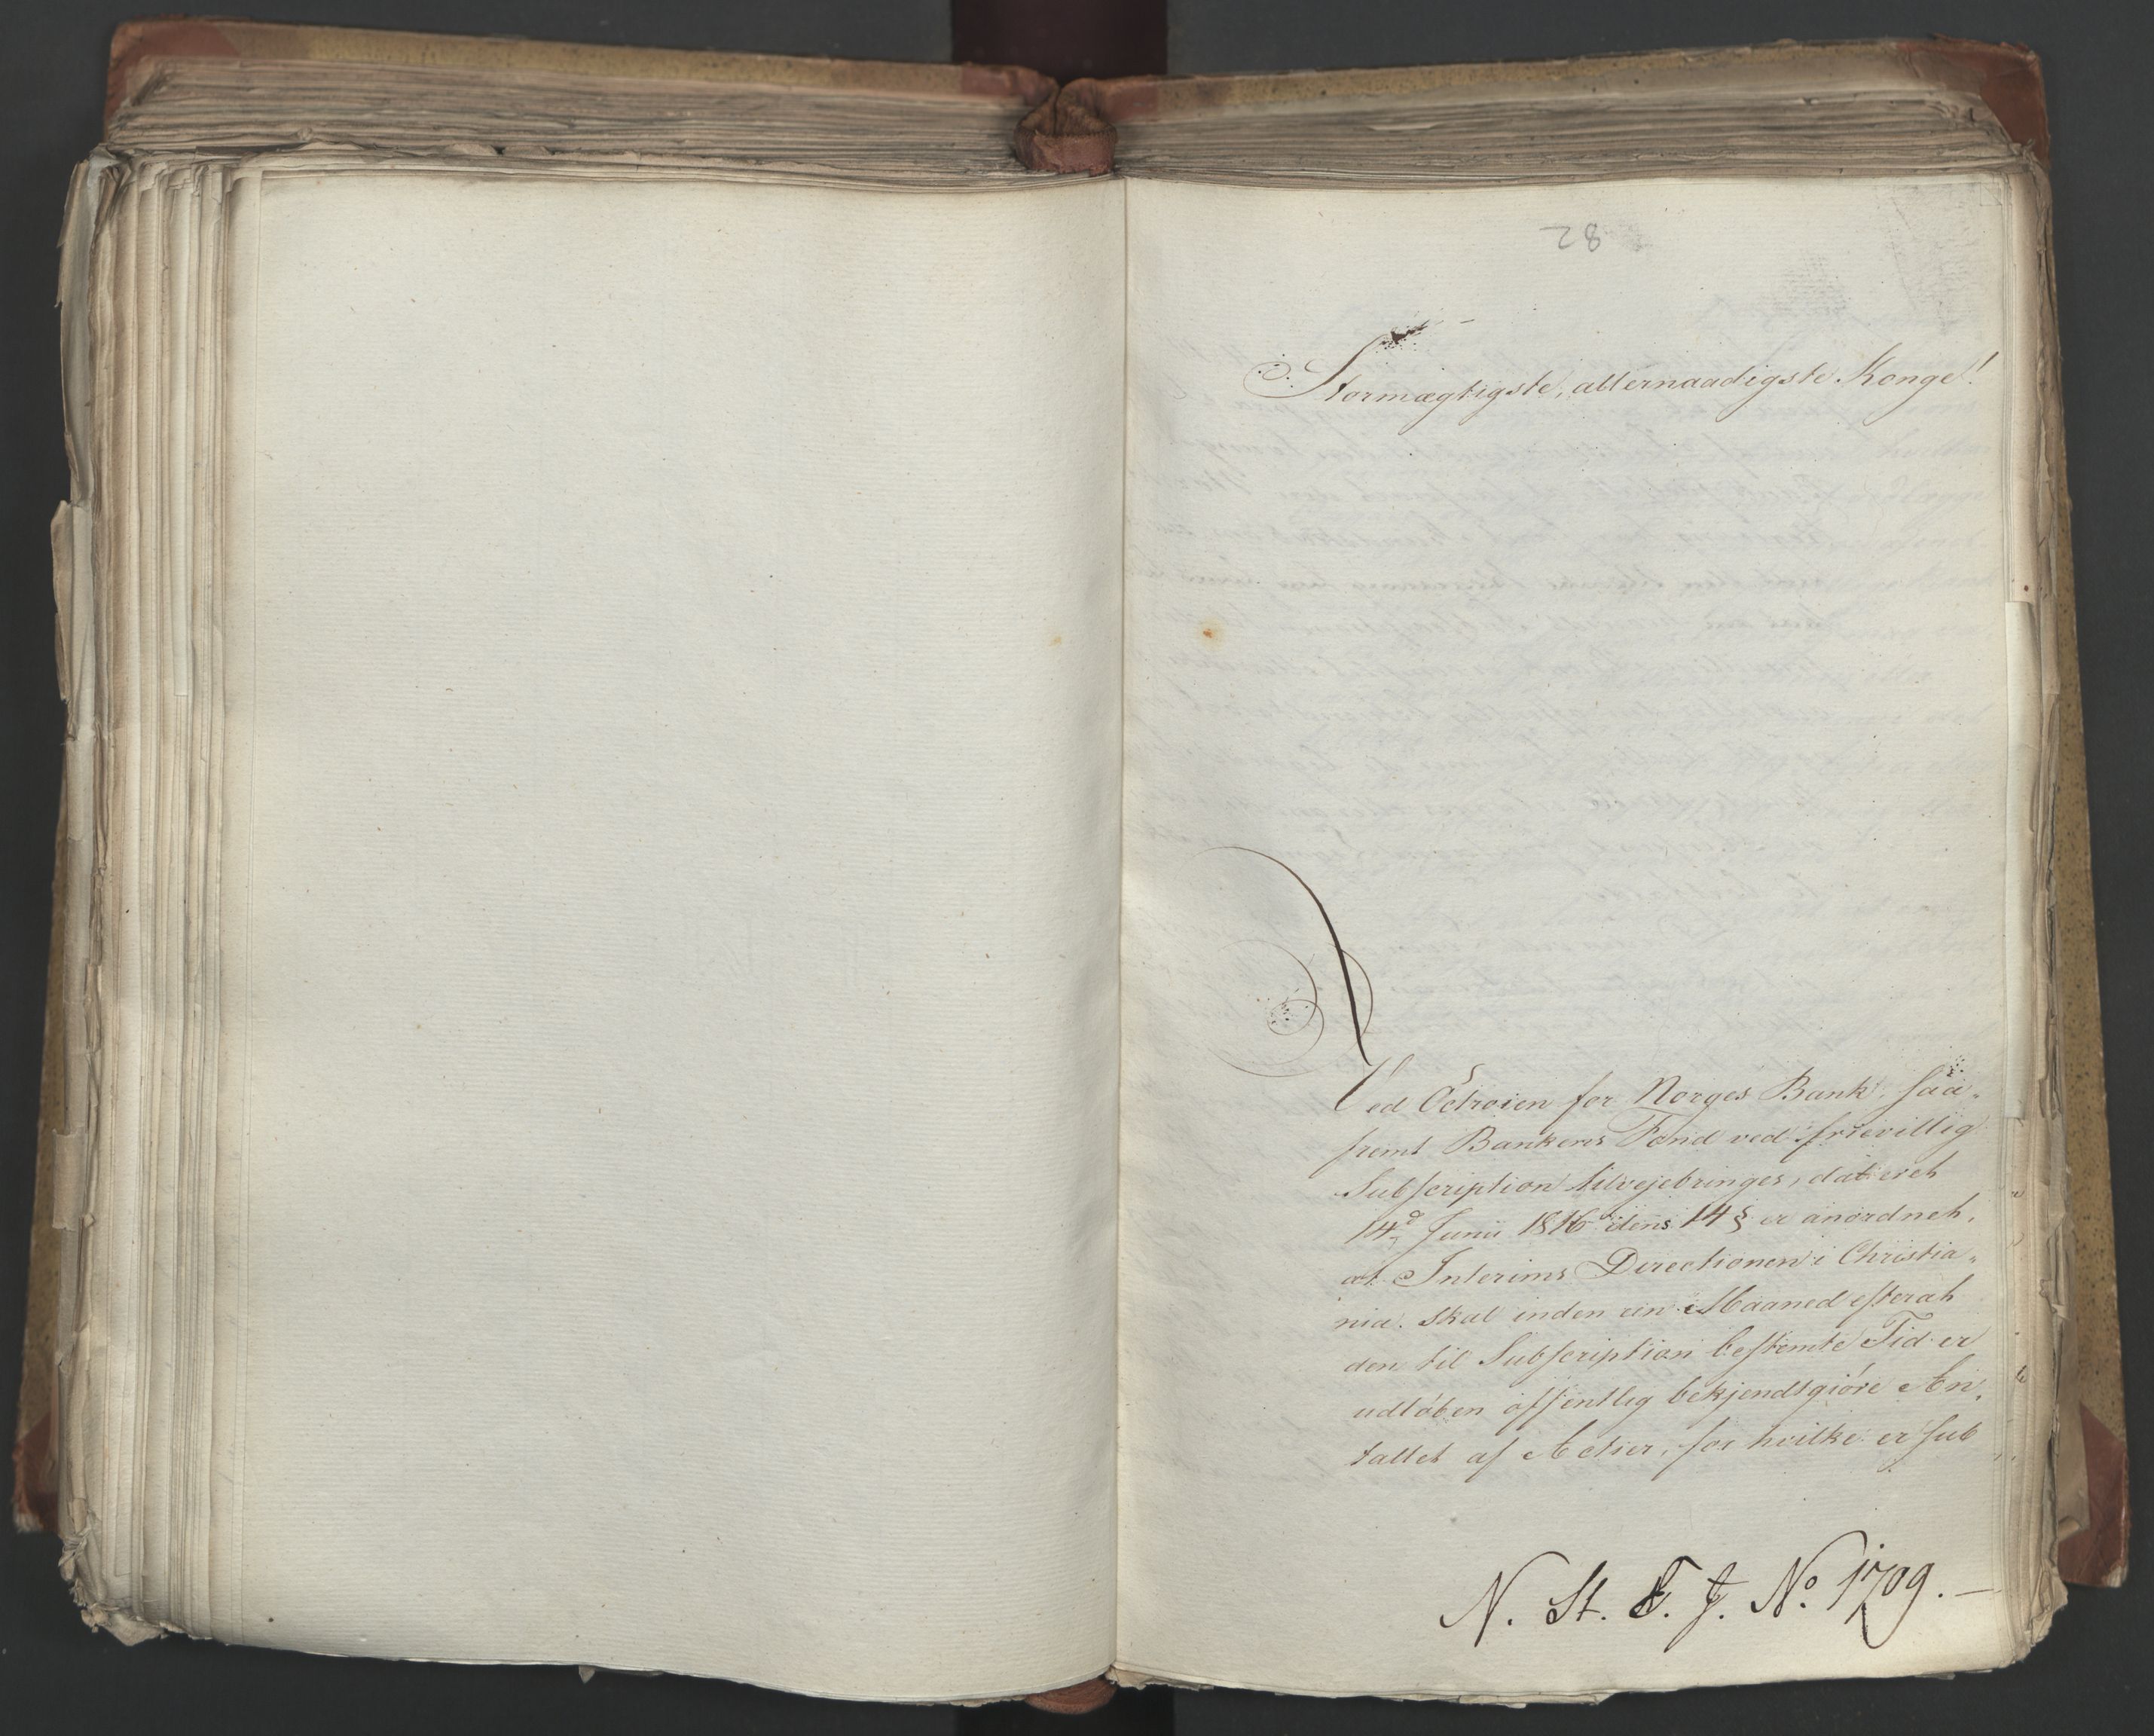 28
Stormægtigste, allernaadigste Konge!
Ved Octroien for Norges Bank, saa-
fremt Bankens Fond ved frievillig
Subscription tilvejebringes, dateret
14d Junii 1816 dens 14 § er anordnet,
at Interims Directionen i Christia-
nia skal inden een Maaned efterat
den til Subscription bestemte Tid er
udløben offentlig bekjendtgiøre An-
tallet af Actier, for hvilke er sub
N. St. E. J. No. 1709. —